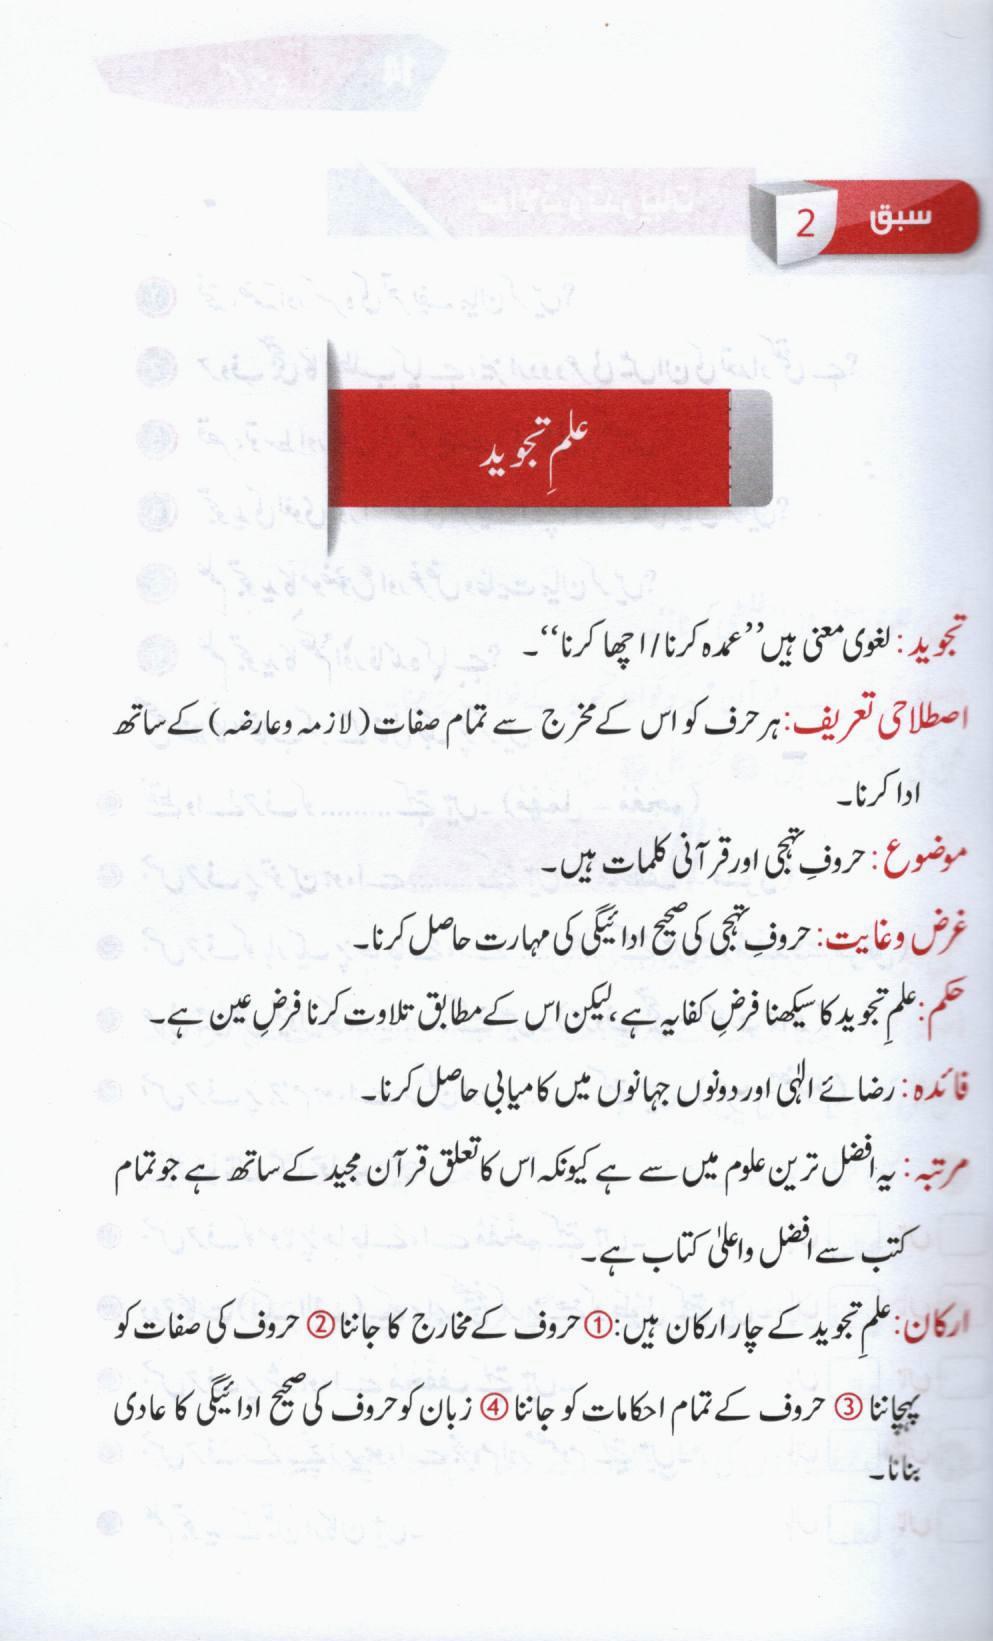 سبق 2
علمِ تجوید
تجوید: لغوی معنی ہیں ’’عمدہ کرنا/اچھا کرنا‘‘۔
اصطلاحی تعریف: ہر حرف کو اس کے مخرج سے تمام صفات (لازمہ وعارضہ) کے ساتھ
ادا کرنا۔
موضوع: حروفِ تہجی اور قرآنی کلمات ہیں۔
غرض وغایت: حروفِ تہجی کی صحیح ادائیگی کی مہارت حاصل کرنا۔
حکم: علمِ تجوید کا سیکھنا فرضِ کفایہ ہے، لیکن اس کے مطابق تلاوت کرنا فرضِ عین ہے۔
فائدہ: رضائے الٰہی اور دونوں جہانوں میں کامیابی حاصل کرنا۔
مرتبہ: یہ افضل ترین علوم میں سے ہے کیونکہ اس کا تعلق قرآن مجید کے ساتھ ہے جو تمام
کتب سے افضل واعلیٰ کتاب ہے۔
ارکان: علمِ تجوید کے چار ارکان ہیں: ① حروف کے مخارج کا جاننا ② حروف کی صفات کو
پہچاننا ③ حروف کے تمام احکامات کو جاننا ④ زبان کو حروف کی صحیح ادائیگی کا عادی
بنانا۔